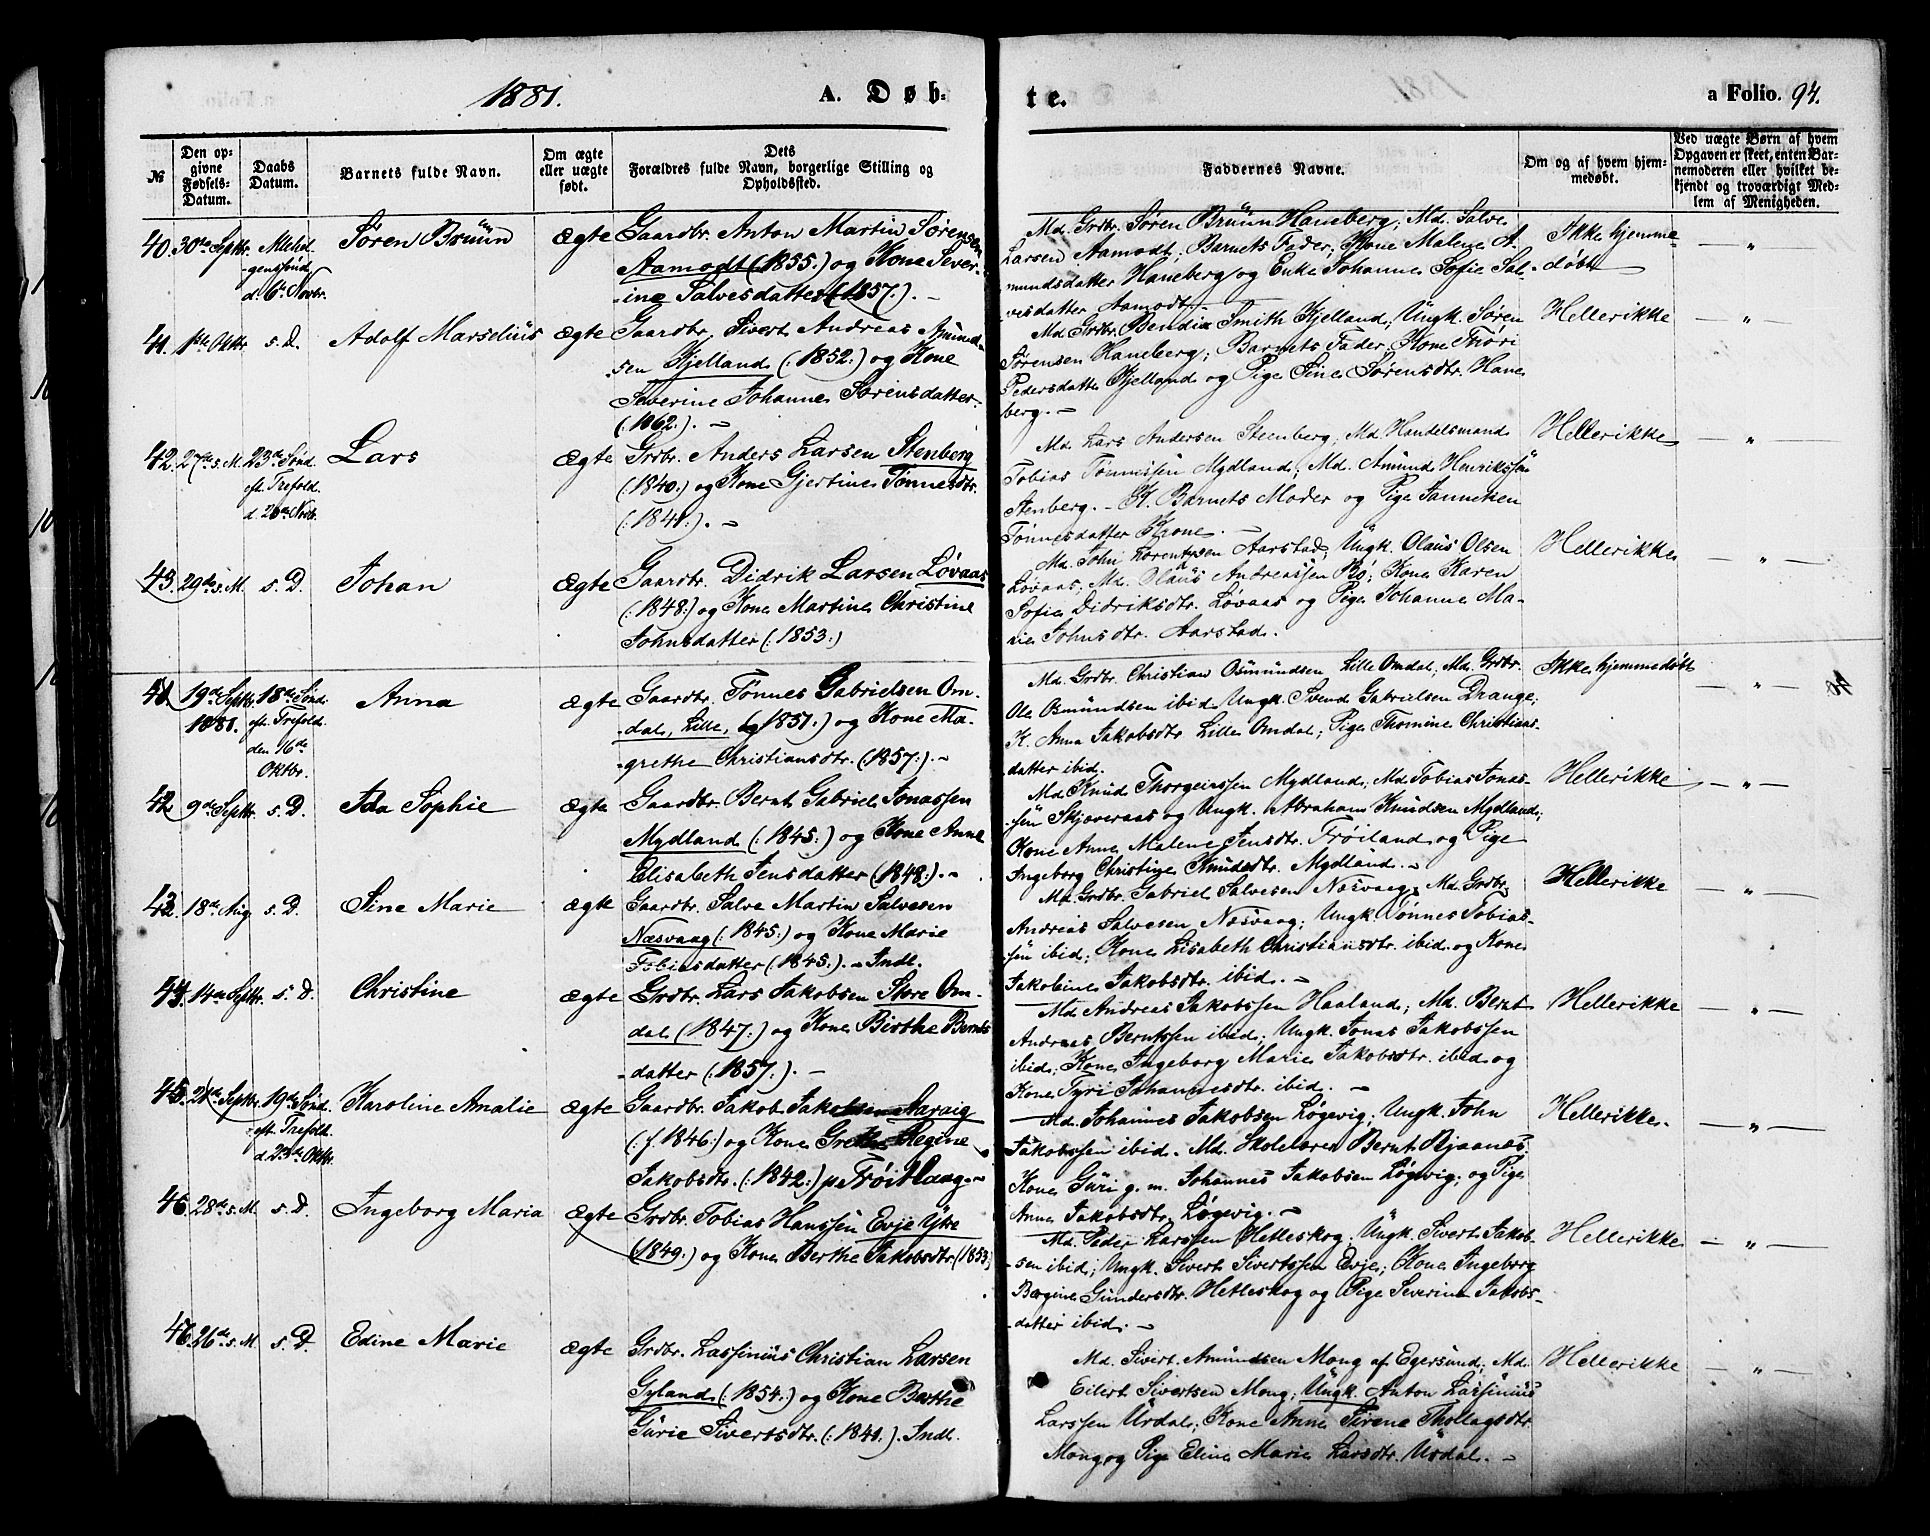 1881.
A. Døb-
te.
a Folio. 94.
№
Den op-
givne
Fødsels-
Datum.
Daabs
Datum.
Barnets fulde Navn.
Om ægte
eller uægte
født.
Dets
Forældres fulde Navn, borgerlige Stilling og
Opholdssted.
Faddernes Navne.
Om og af hvem hjem-
medøbt.
Ved uægte Børn af hvem
Opgaven er skeet, enten Bar-
nemoderen eller hvilket be-
kjendt og troværdigt Med-
lem af Menigheden.
40. 30te Septbr.
d. 6te Novbr.
Søren Bruün
ægte
Gaardbr. Anton Martin Sørensen
Aamodt (1855.) og Kone Sever-
ine Salvesdatter (1857.). –
Md. Grdbr. Søren Bruün Haneberg; Md. Salve
Larsen Aamodt; Barnets Fader; Kone Malene A.
mundsdatter Haneberg og Enke Johanne Sofie Sal-
vesdatter Aamodt. –
Ikke hjemme-
døbt
— „
41. 1ste Oktbr.
s. D.
Adolf Marselius
ægte
Gaardbr. Sivert Andreas Amund-
sen Kjelland (:1852:) og Kone
Severine Johanne Sørensdatter
(:1862:). –
Md. Grdbr. Bendix Smith Kjelland; Ungk. Søren
Sørensen Haneberg; Barnets Fader; Kone
Pedersdatter Kjelland og Pige Sine Sørensdtr. Hane
berg. –
Hellerikke
— „
42. 27de s. M.
23de Sønd.
eft. Trefold.
d. 20de Novb.
Lars
ægte
Grdbr. Anders Larsen Stenberg
(:1840:) og Kone Gjertine Tønnesdtr.
(:1841:). –
Md. Lars Andersen Steenberg; Md. Handelsmand
Tobias Tønnessen Mydland; Md. Amund Henrikssen
Stenberg. – K. Barnets Moder og Pige Janneken
Tønnesdatter Krone. –
Hellerikke
— „
43. 29de s. M.
s. D.
Johan
ægte
Gaardbr. Didrik Larsen Løvaas
(:1848:) og Kone Martine Christine
Johnsdatter (:1853:)
Md. John Lorentzen Aarstad; Ungk. Olaus Olsen
Løvaas; Md. Olaus Andreassen Bø; Kone Karen
Sofie Didriksdtr. Løvaas og Pige Johanne Ma-
rie Johnsdtr. Aarstad.
Hellerikke
— „ —
41. 19de Septbr.
1881.
18de Sønd.
eft. Trefold.
den 16de
Oktbr.
Anna
ægte
Gaardbr. Tønnes Gabrielsen Om-
dal, Lille, (1851.) og Kone Ma-
grethe Christiansdtr. (:1857:). –
Md. Grdbr. Christian Osmundsen Lille Omdal; Md. Grdbr.
Ole Osmundsen ibid. Ungk. Svend Gabrielsen Drange;
K. Anna Jakobsdtr. Lille Omdal; Pige Thomine Christians-
datter ibid.
Ikke hjemmedøbt
— „ —
42. 9de Septbr.
s. D.
Ida Sophie
ægte
Gaardbr. Bernt Gabriel Jonassen
Mydland (:1845:) og Kone Anne
Elisabeth Jensdatter (1848:). –
Md Knud Thorgeirssen Mydland; Md. Tobias Jonas-
sen Skjæveraas og Ungk. Abraham Knudsen Mydland;
Kone Anne Malene Jensdtr. Frøiland og Pige
Ingeborg Christine Knudsdtr. Mydland. –
Hellerikke
— „ —
43. 18de Aug.
s. D.
Sine Marie
ægte
Gaardbr. Salve Martin Salvesen
Næsvaag (:1845:) og Kone Marie
Tobiasdatter (:1845.). – Indl.
Md. Grdbr. Gabriel Salvesen Næsvaag; Md. Grdbr.
Andreas Salvesen Næsvaag; Ungk. Tønnes Tobias-
sen ibid; Kone Lisabeth Christiansdtr. ibid. og Kone
Jakobine Jakobsdtr. ibid. –
Hellerikke
— „ —
44. 14de Septbr.
s. D.
Christine
ægte
Grdbr. Lars Jakobsen Store Om-
dal (1847.) og Kone Birthe Bernts
datter (:1857.). –
Md Andreas Jakobssen Haaland; Md. Bernt
Andreas Berntssen ibid; Ungk. Jonas Jakobssen
ibid; Kone Ingeborg Marie Jakobsdtr. ibid og
Kone Tyri Johannesdtr. ibid. –
Hellerikke
— „ —
45. 21de Septbr.
19de Sønd.
eft. Trefold.
d. 23de Oktbr.
Karoline Amalie
ægte
Gaardbr. Jakob Jakobsen
(:f. 1846:) og Kone Grethe Regine
Jakobsdtr. (:1842:)
Md. Johannes Jakobsen Løgevig; Ungk. John
Jakobssen ibid. Md. Skolelærer Bernt
Kone Guri g. m. Johannes Jakobsen Løgevig; og Pige
Anne Jakobsdtr. Løgevig. –
Hellerikke.
— „ —
46. 28de s. M.
s. D.
Ingeborg Maria
ægte
Grdbr. Tobias Hanssen Evje Ytre
(1849.) og Kone Berthe Jakobsdtr. (1853.)
Md. Peder Larssen Hetleskog. Ungk. Sivert Jakob-
sen ibid; Ungk. Sivert Sivertssen Evje; Kone Ingeborg
Bergine Gundersdtr. Hetleskog og Pige Severine Jakobs-
datter ibid. –
Hellerikke
— „ —
47. 26de s. M.
s. D.
Edine Marie
ægte
Grdbr. Lassinius Christian Larsen
Gyland (:1854:) og Kone Berthe
Gurie Sivertsdtr. (:1841.). Indl.
Md. Sivert Amundsen Mong af Egersund; Md.
Eilert Sivertsen Mong; Ungk. Anton Lassinius
Larssen Urdal; Kone Anne Sirene Thollagsdtr.
Mong og Pige Eline Marie Larsdtr. Urdal. –
Hellerikke
— „ —